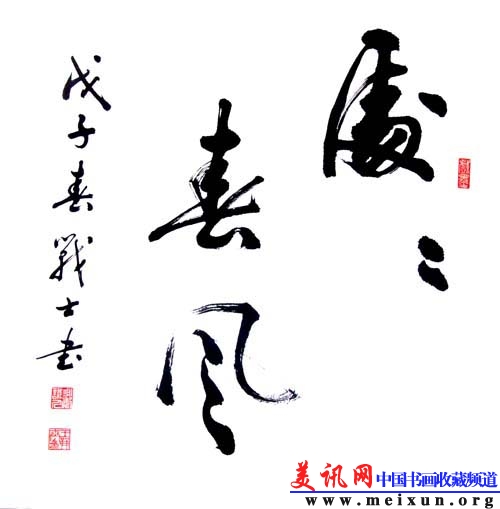 處〻
春风
戊子春戰士書
美讯网中国书画收藏频道
www.meixun.org